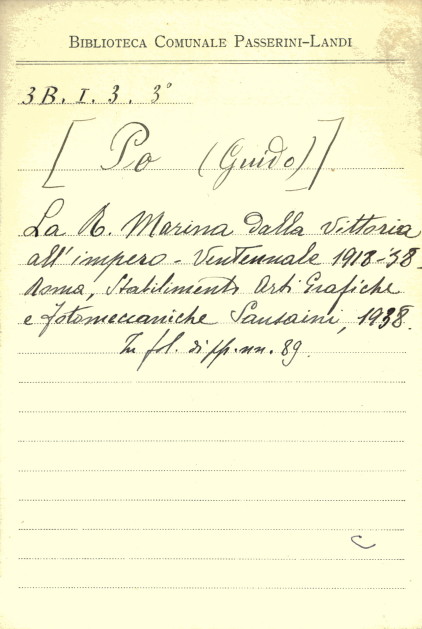 BIBLIOTECA COMUNALE PASSERINI-LANDI
3B. I. 3. 3°
[ Po (Guido) ]
La R. Marina dalla vittoria
all'impero - Ventennale 1918-'38 -
Roma, Stabilimento Arti Grafiche
e fotomeccaniche Sansaini, 1938.
In fol. di pp. nn. 89.
C